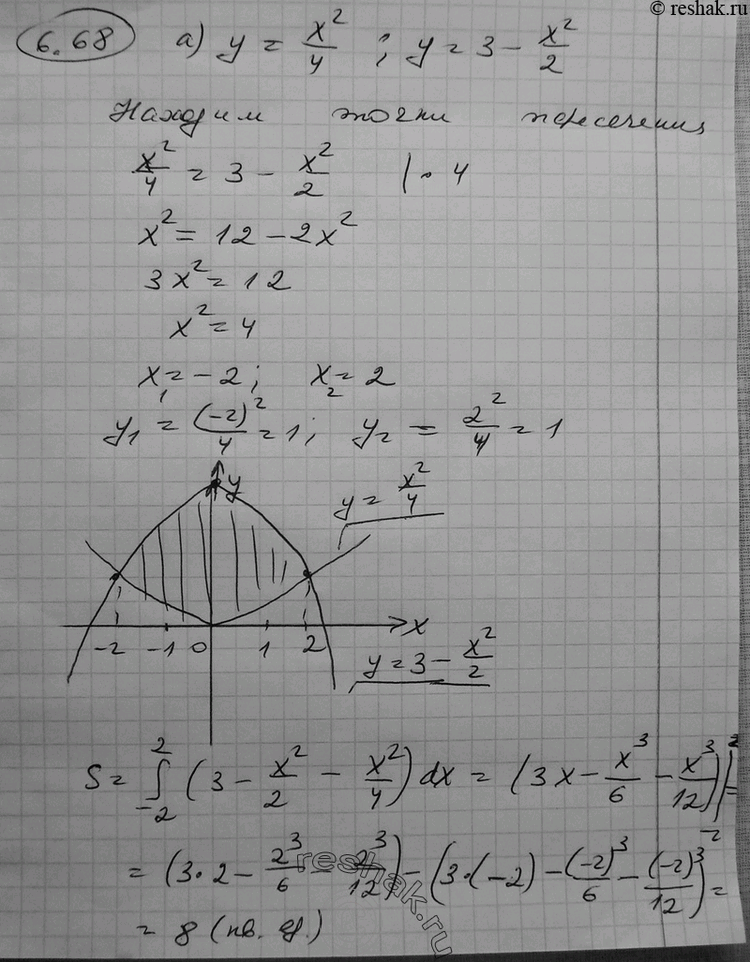 © reshak.ru
6.68 а) y = x²/4 ; y = 3 - x²/2
Находим точки пересечения
x²/4 = 3 - x²/2 | · 4
x² = 12 - 2x²
3x² = 12
x² = 4
x₁ = -2; x₂ = 2
y₁ = (-2)²/4 = 1; y₂ = 2²/4 = 1
y
y = x²/4
-2 -1 0 1 2 x
y = 3 - x²/2
S = ∫₋₂² (3 - x²/2 - x²/4) dx = (3x - x³/6 - x³/12)|₋₂² =
= (3·2 - 2³/6 - 2³/12) - (3·(-2) - (-2)³/6 - (-2)³/12) =
= 8 (кв. ед.)
reshak.ru